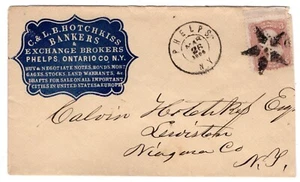 C. & L. B. HOTCHKISS
BANKERS
&
EXCHANGE BROKERS
PHELPS, ONTARIO CO. N.Y.
BUY & NEGOTIATE NOTES, BONDS, MORT
GAGES, STOCKS, LAND WARRANTS, &c
DRAFTS FOR SALE ON ALL IMPORTANT
CITIES IN UNITED STATES & EUROPE
PHELPS
N.Y.
Calvin Hotchkiss Esq
Lewiston
Niagara Co
N.Y.